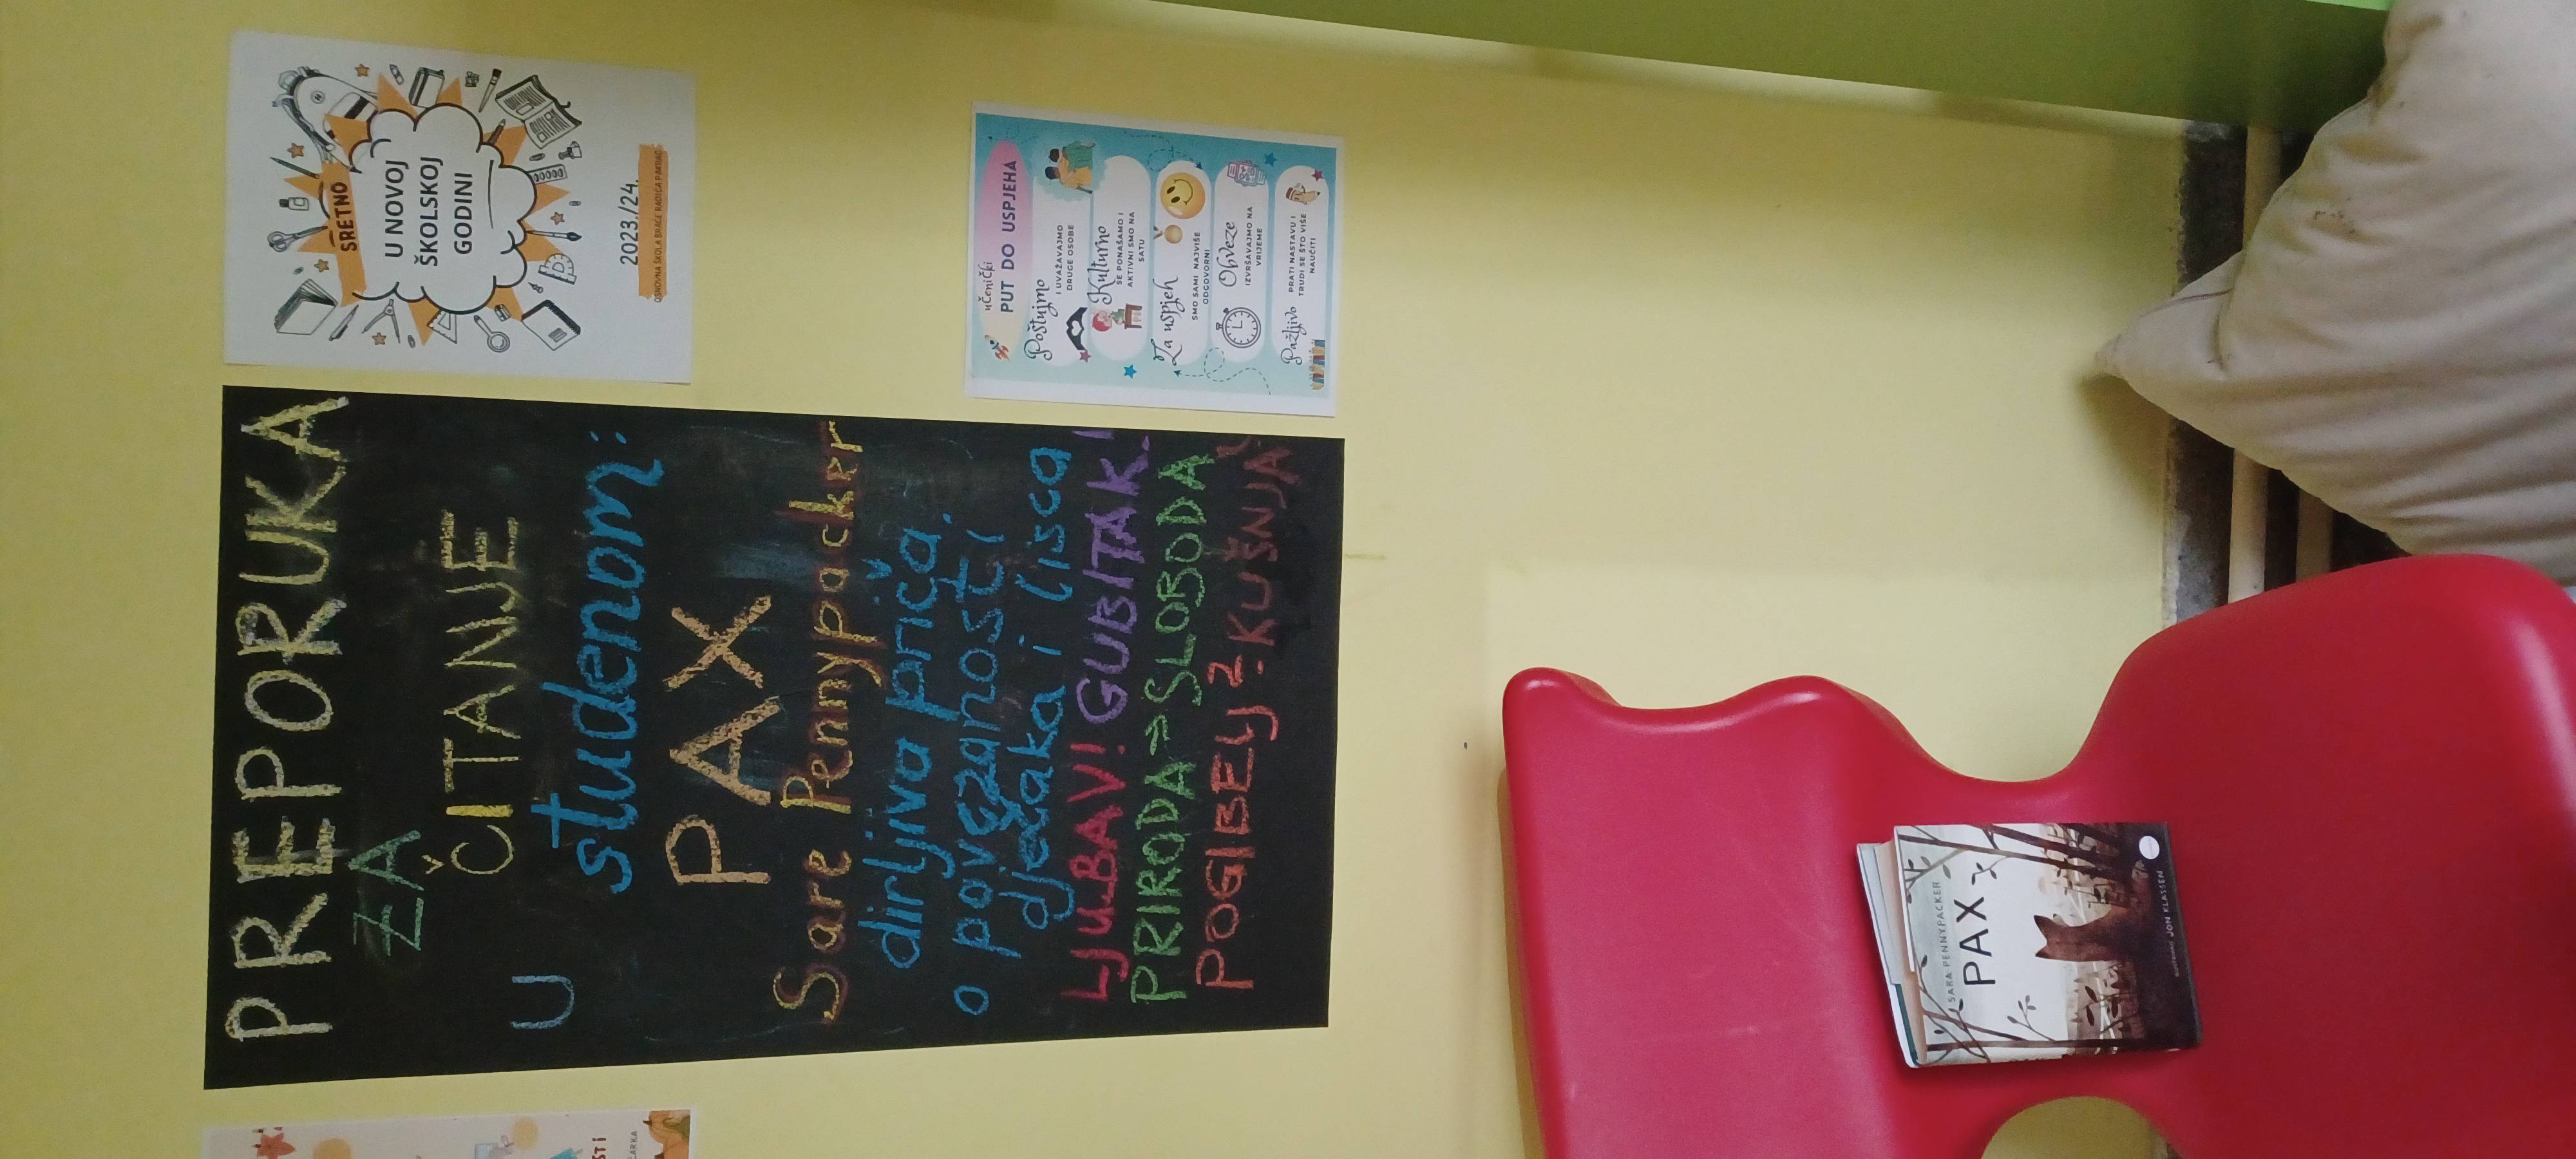 PREPORUKA
ZA
ČITANJE
U
studenom:
PAX
Sare Pennypacker
dirljiva priča
o povezanosti
dječaka i lisca
LJUBAV! GUBITAK!
PRIRODA→SLOBODA
POGIBELJ?:KUŠNJA
SRETNO
U NOVOJ
ŠKOLSKOJ
GODINI
2023./24.
OSNOVNA ŠKOLA BRAĆE RADIĆA PAKRAC
učenički
PUT DO USPJEHA
Poštujmo
I UVAŽAVAJMO
DRUGE OSOBE
Kulturno
SE PONAŠAMO I
AKTIVNI SMO NA
SATU
Za uspjeh
SMO SAMI NAJVIŠE
ODGOVORNI
Obveze
IZVRŠAVAJMO NA
VRIJEME
Pažljivo
PRATI NASTAVU I
TRUDI SE ŠTO VIŠE
NAUČITI
SARA PENNYPACKER
PAX
JON KLASSEN